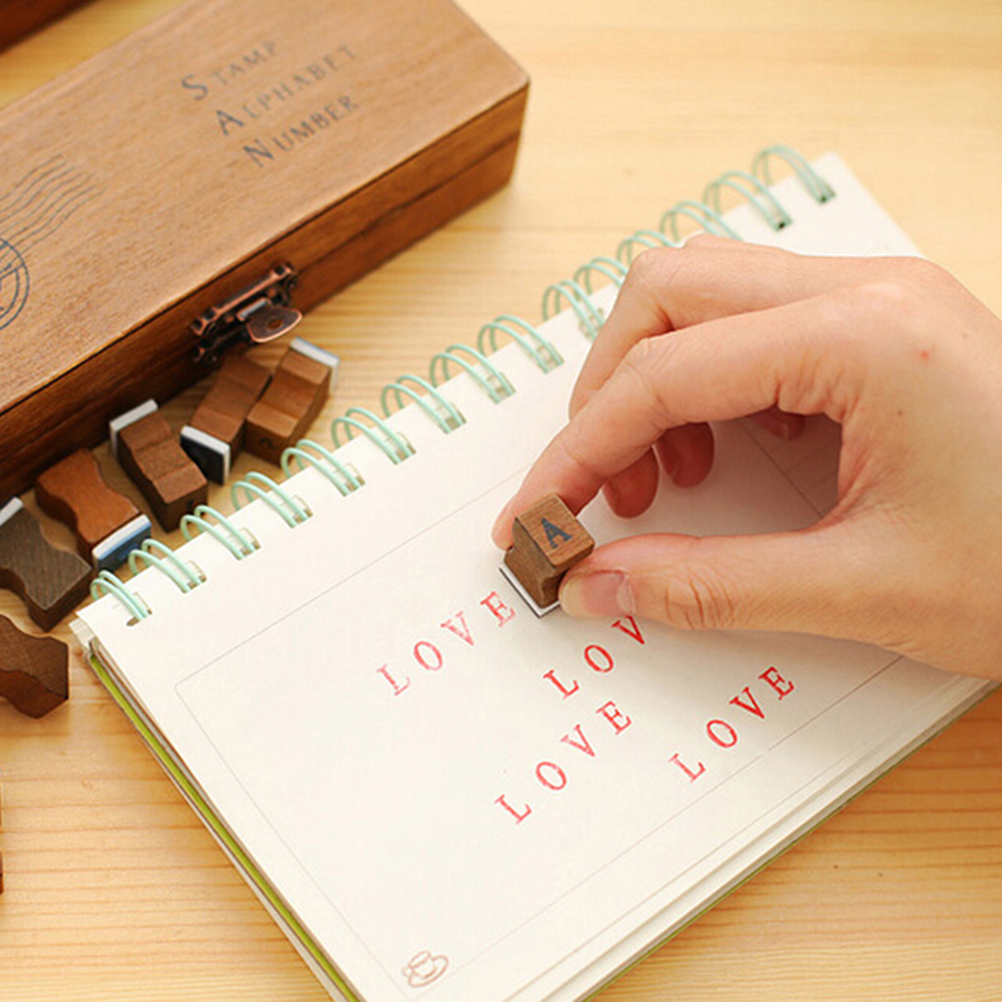 STAMP
ALPHABET
NUMBER
A
LOVE
LOV
LOVE
LOVE